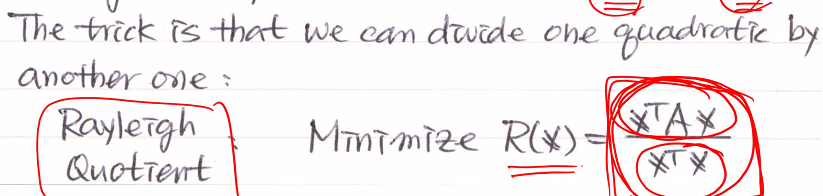 The trick is that we can divide one quadratic by
another one :
Rayleigh Quotient : Minimize R(x) = xᵀAx / xᵀx